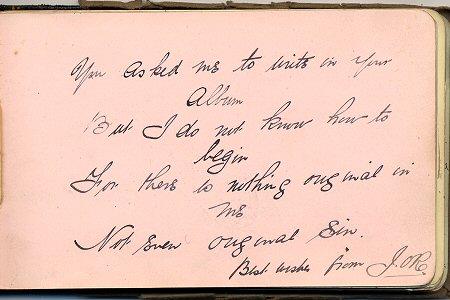 You asked me to write in your
Album
But I do not know how to
begin
For there is nothing original in
me
Not even original Sin.
Best wishes from J.OR.